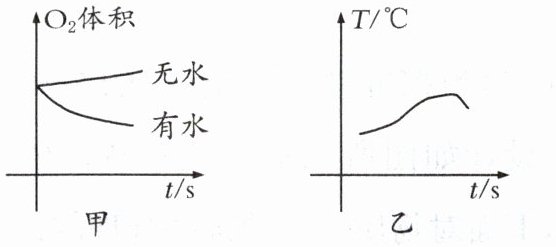 O₂体积
无水
有水
t/s
甲
T/℃
t/s
乙